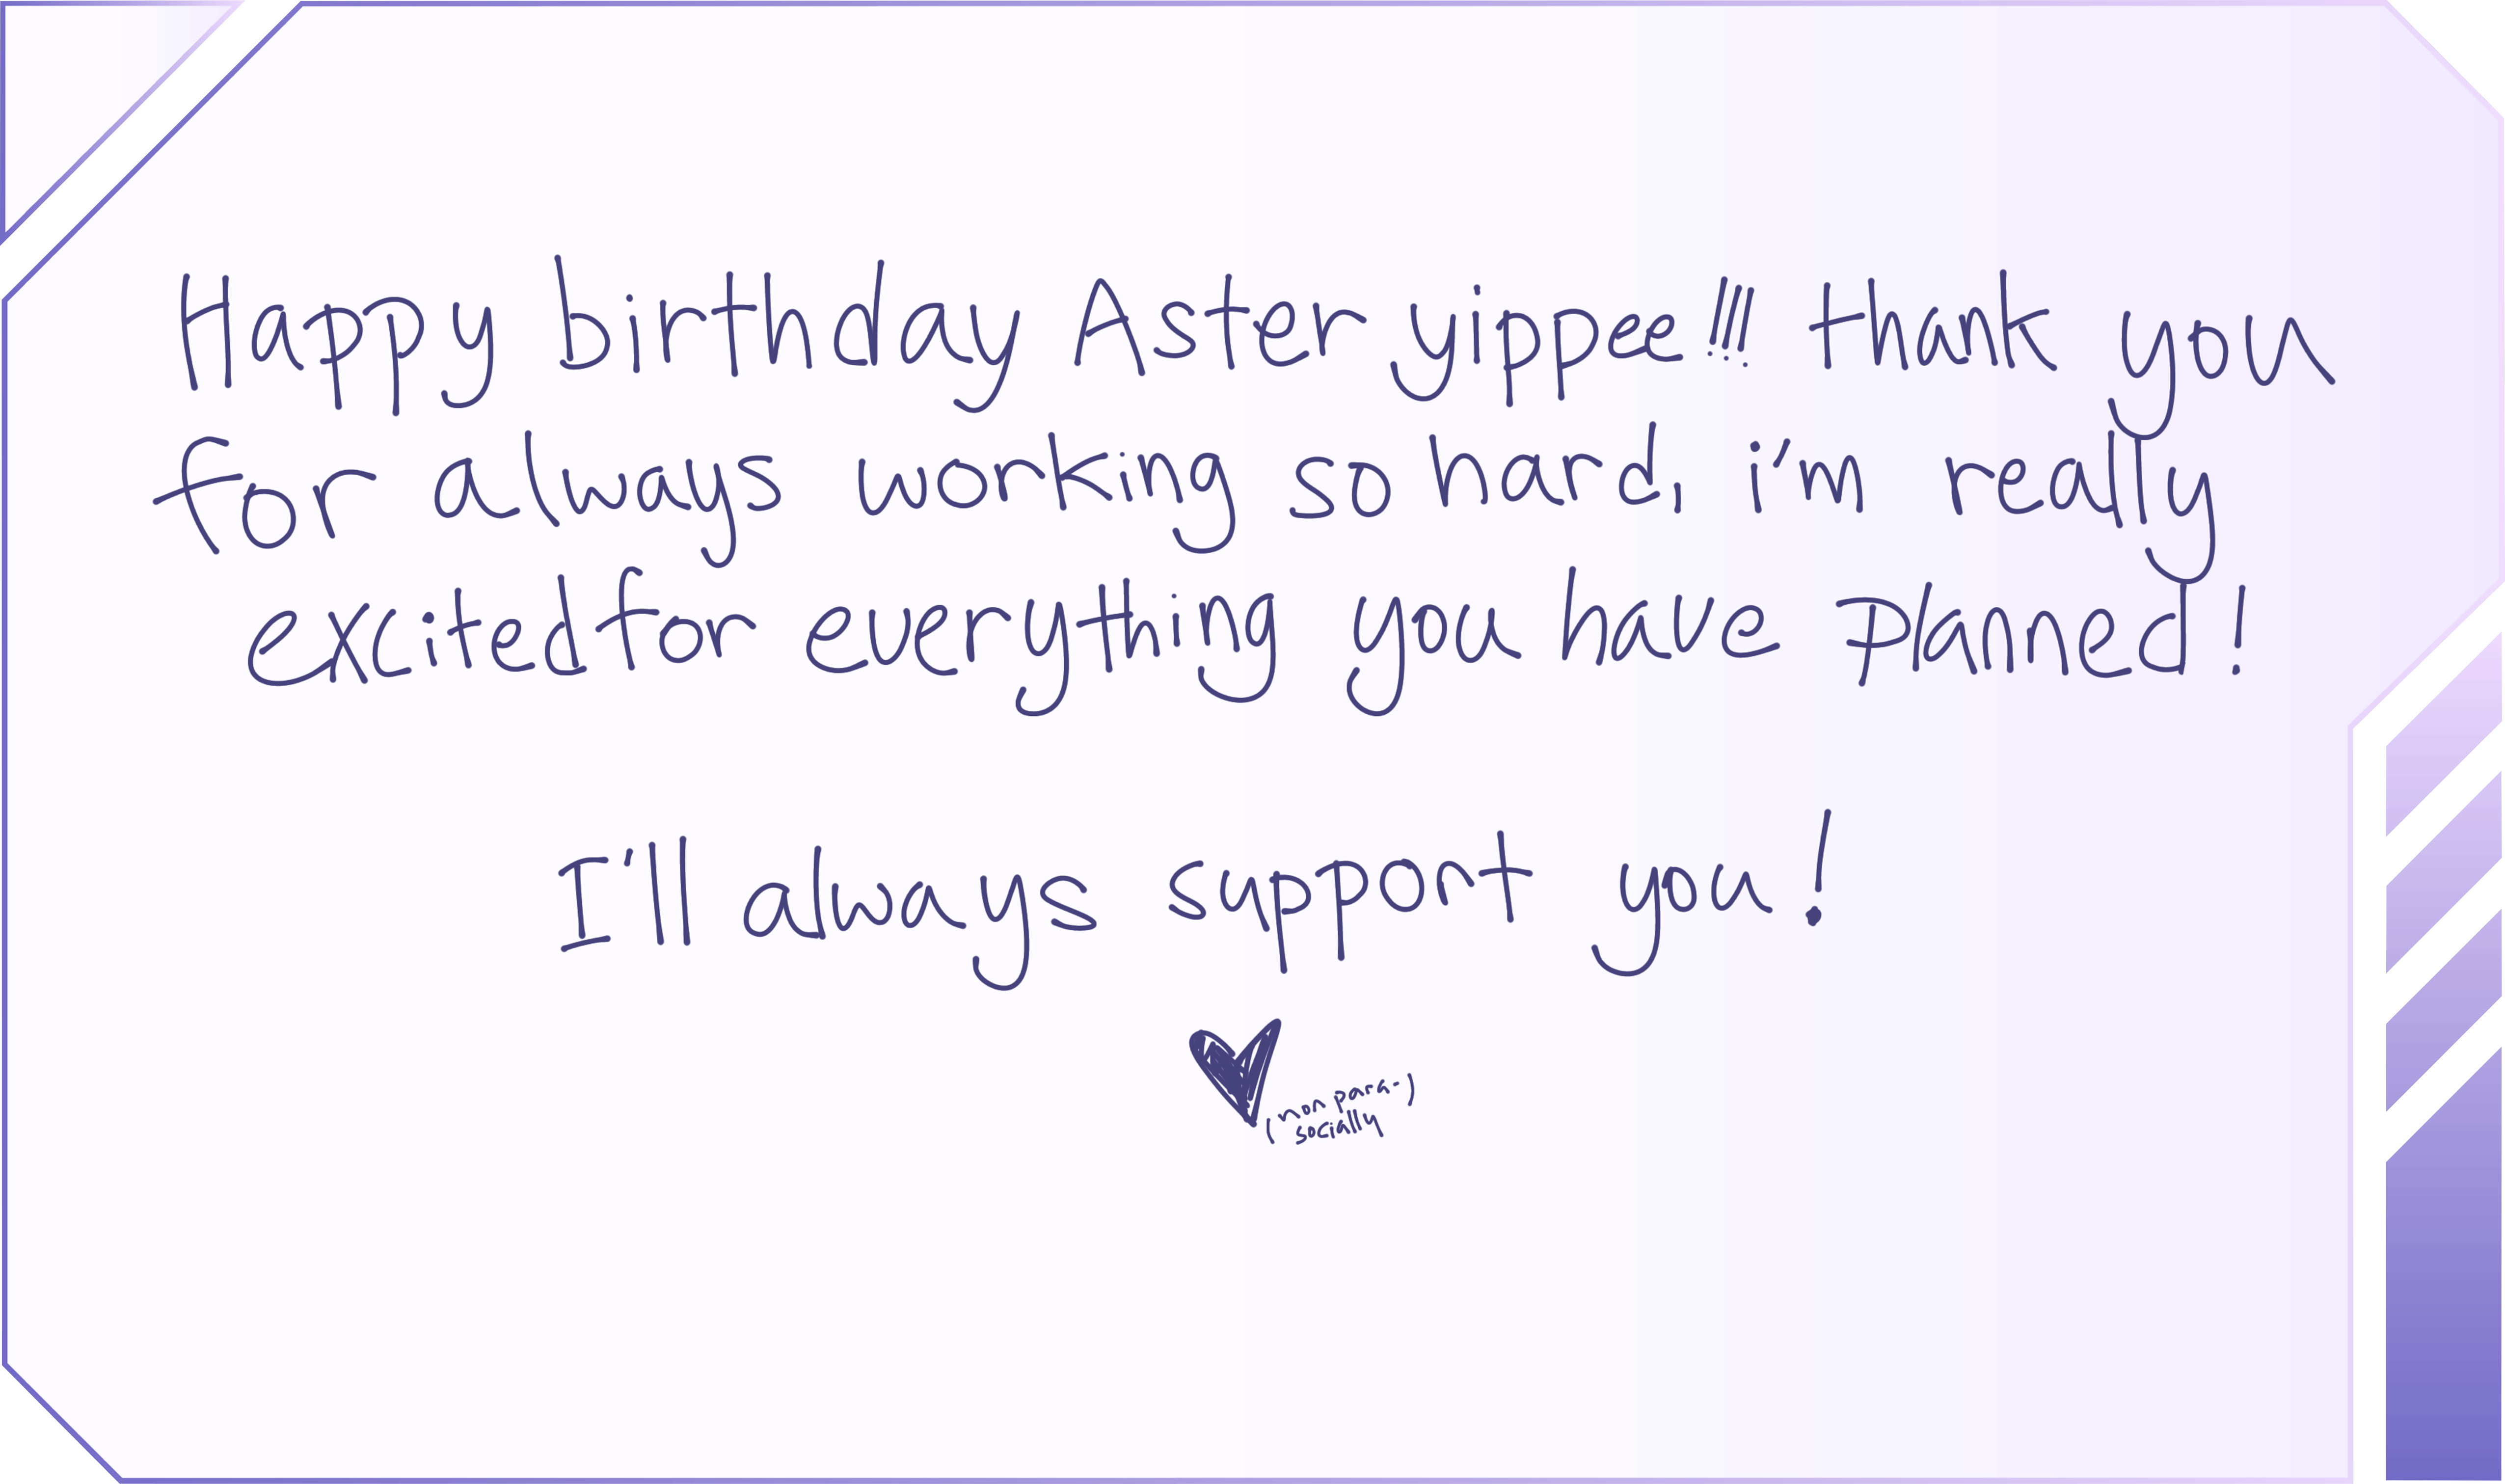 Happy birthday Aster yippee!!! thank you
for always working so hard, i'm really
excited for everything you have planned!
I'll always support you!
(non para-)
socially